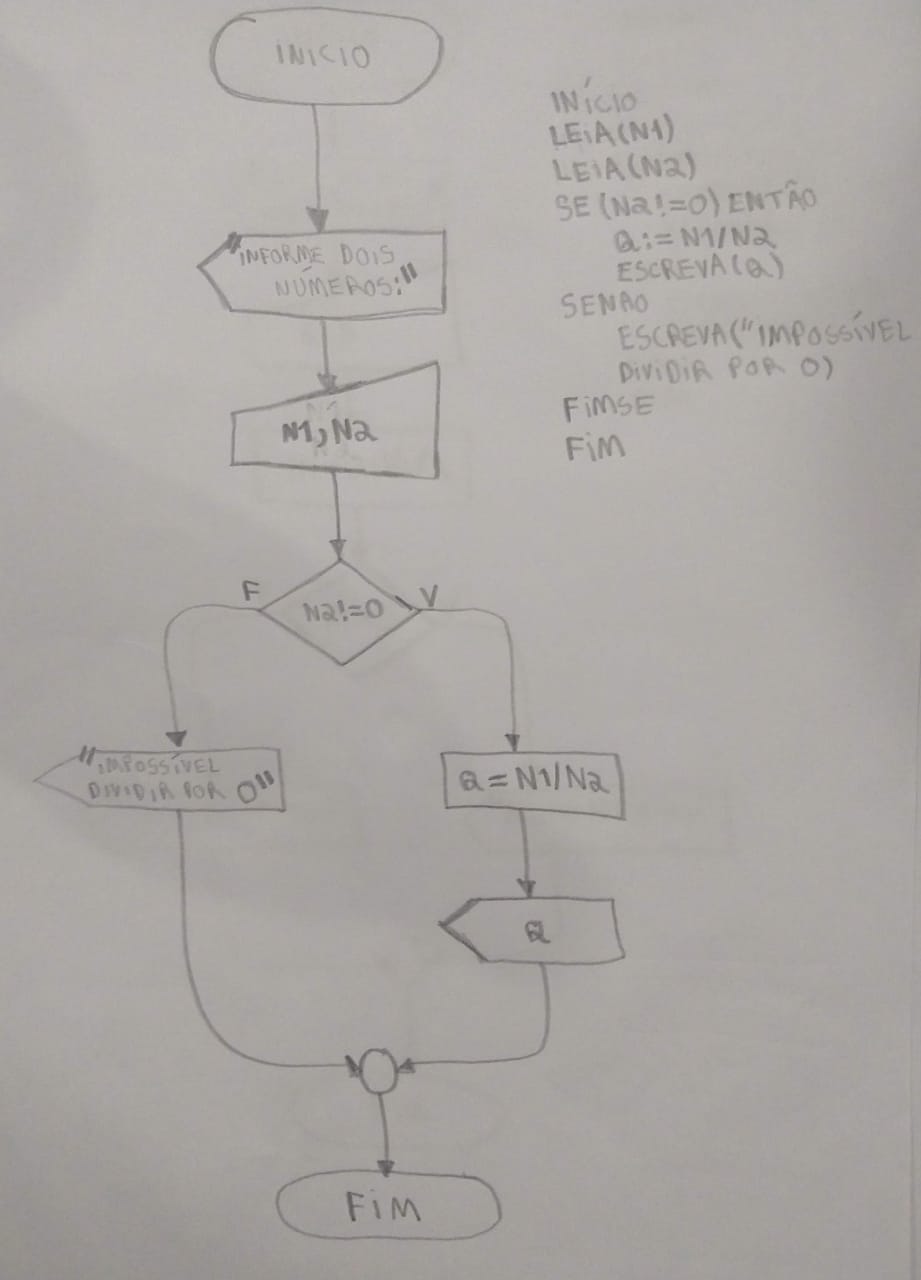 INICIO
"INFORME DOIS
NÚMEROS:"
N1,N2
N2!=0
F
V
"IMPOSSÍVEL
DIVIDIR POR 0"
Q=N1/N2
Q
FIM
INÍCIO
LEIA(N1)
LEIA(N2)
SE (N2!=0) ENTÃO
Q:=N1/N2
ESCREVA(Q)
SENAO
ESCREVA("IMPOSSÍVEL
DIVIDIR POR 0)
FIMSE
FIM